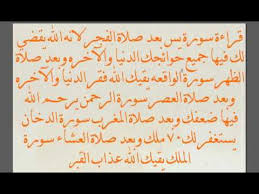 قراءة سورة يس بعد صلاة الفجر لانه الله يقضي
لك فيها جميع حوائجك الدنيا والآخره وبعد صلاة
الظهر سورة الواقعه يقيك الله فقر الدنيا والآخره
وبعد صلاة العصر سورة الرحمن يرحم الله
فيها ضعفك وبعد صلاة المغرب سورة الدخان
يستغفر لك ٧٠ ملك وبعد صلاة العشاء سورة
الملك يقيك الله عذاب القبر